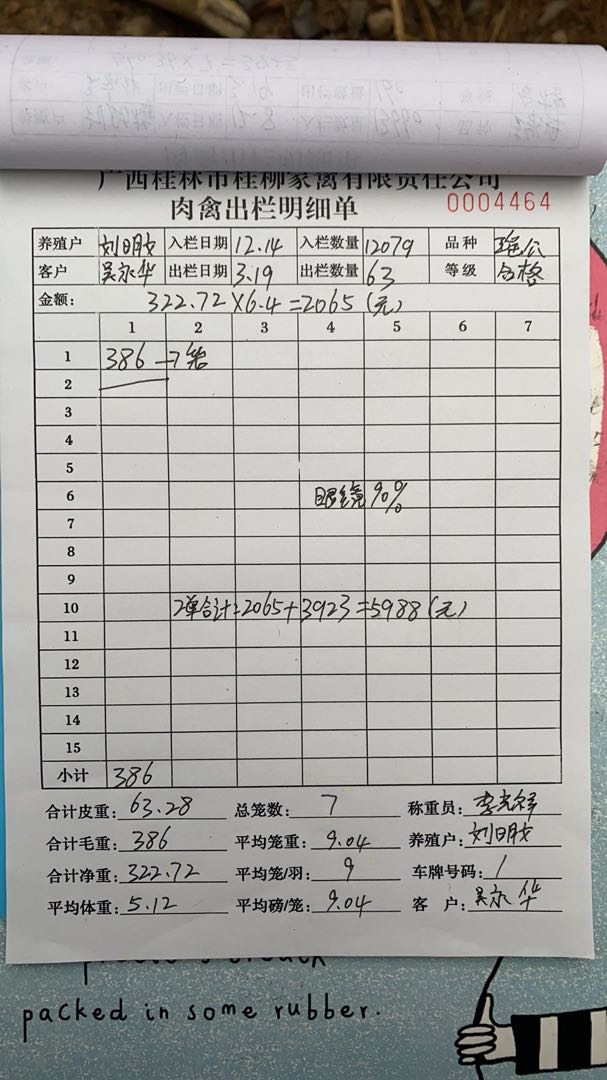 广西桂林市桂柳家禽有限责任公司
肉禽出栏明细单 0004464
养殖户 刘日胶 入栏日期 12.14 入栏数量 12079 品种 瑶公
客户 吴永华 出栏日期 3.19 出栏数量 63 等级 合格
金额: 322.72×6.4=2065(元)
1 2 3 4 5 6 7
1 386—7笼
2
3
4
5
6 眼镜90%
7
8
9
10 2单合计=2065+3923=5988(元)
11
12
13
14
15
小计 386
合计皮重: 63.28 总笼数: 7 称重员:
合计毛重: 386 平均笼重: 9.04 养殖户: 刘日胶
合计净重: 322.72 平均笼/羽: 9 车牌号码: /
平均体重: 5.12 平均磅/笼: 9.04 客 户: 吴永华
packed in some rubber.